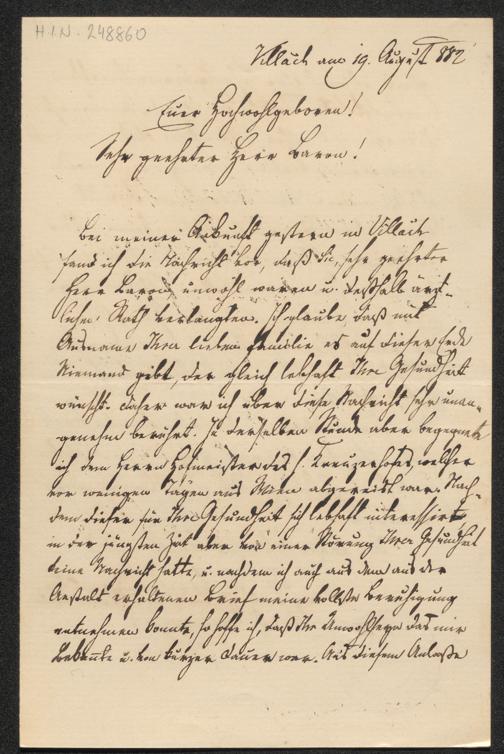 H.I.N. 248860
Villach am 19. August 882
Euer Hochwohlgeboren!
Sehr geehrter Herr Baron!
Bei meiner Ankunft gestern in Villach
fand ich die Nachricht vor, daß Sie, sehr geehrter
Herr Baron unwohl waren u. deßhalb ärzt-
lichen Rath verlangten. Ich glaube daß mit
Ausname Ihrer lieben Familie es auf dieser Erde
Niemand gibt, der gleich lebhaft Ihre Gesundheit
wünscht. daher war ich über diese Nachricht sehr unan-
genehm berührt. In derselben Stunde aber begegnete
ich dem Herrn Hofmeister des h. Kreuzerhofes, welcher
vor wenigen Tagen aus Wien abgereist war. Nach-
dem dieser für Ihre Gesundheit sich lebhaft interessirt
in der jüngsten Zeit aber von einer Störung Ihrer Gesundheit
keine Nachricht hatte, u. nachdem ich auch aus dem aus der
Anstalt erhaltenen Brief meine vollste Beruhigung
entnehmen konnte, so hoffe ich, daß Ihr Unwohlseyn das mir
u. von kurzer Dauer war. Aus diesem Anlaße